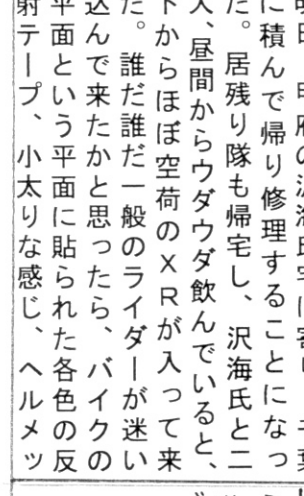 に積んで帰り修理することになっ
た。居残り隊も帰宅し、沢海氏と二
人、昼間からウダウダ飲んでいると、
下からほぼ空荷のXRが入って来
た。誰だ誰だ一般のライダーが迷い
込んで来たかと思ったら、バイクの
平面という平面に貼られた各色の反
射テープ、小太りな感じ、ヘルメッ